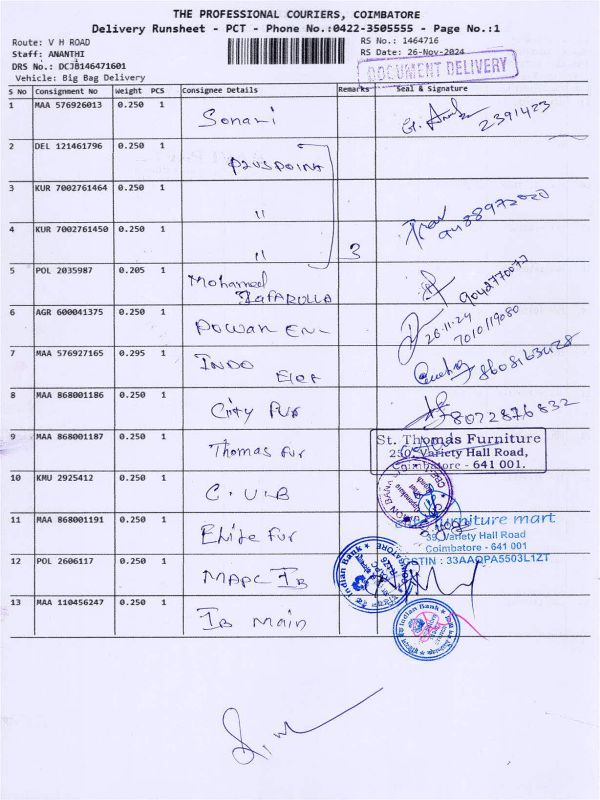 THE PROFESSIONAL COURIERS, COIMBATORE
Delivery Runsheet - PCT - Phone No.:0422-3505555 - Page No.:1
Route: V H ROAD
RS No.: 1464716
Staff: ANANTHI
RS Date: 26-Nov-2024
DRS No.: DCJB146471601
DOCUMENT DELIVERY
Vehicle: Big Bag Delivery
S No Consignment No Weight PCS Consignee Details Remarks Seal & Signature
1 MAA 576926013 0.250 1 Sonari 2391423
2 DEL 121461796 0.250 1
3 KUR 7002761464 0.250 1 "
4 KUR 7002761450 0.250 1 " 3
5 POL 2035987 0.205 1 Mohamed
6 AGR 600041375 0.250 1 26-11-24
7010119080
7 MAA 576927165 0.295 1 INDO
8 MAA 868001186 0.250 1 City Fur 8022876832
9 MAA 868001187 0.250 1 Thomas Fur St. Thomas Furniture
230, Variety Hall Road,
Coimbatore - 641 001.
10 KMU 2925412 0.250 1 C. U. B
11 MAA 868001191 0.250 1 Elite Fur Furniture mart
39, Variety Hall Road
Coimbatore - 641 001
GSTIN : 33AAQPA5503L1ZT
12 POL 2606117 0.250 1 MAPC IB Indian Bank
13 MAA 110456247 0.250 1 IB Main Indian Bank